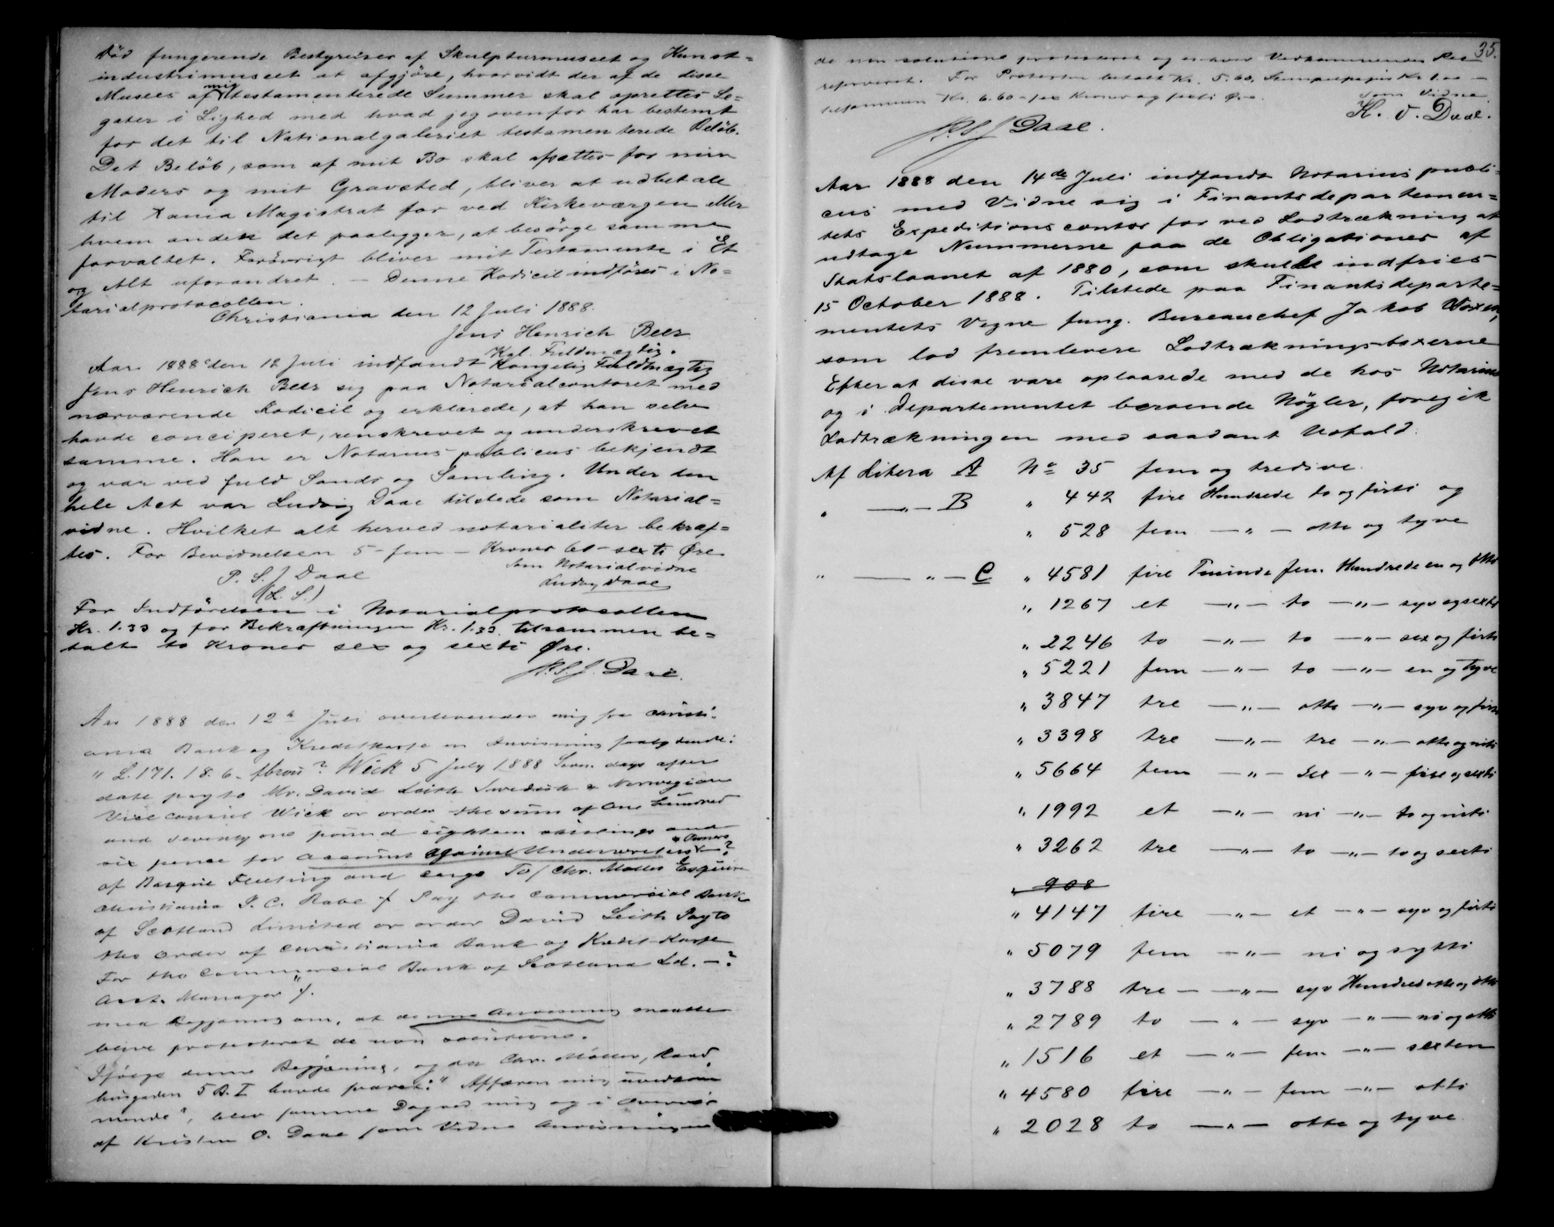 Död fungerende Bestyrelser af Skulpturmuseet og Kunst=
industrimuseet at afgjøre, hvorvidt der af de disse
Museer af mig testamenterede Summer skal oprettes Le=
gater i Lighed med hvad jeg ovenfor har bestemt
for det til Nationalgaleriet testamenterede Beløb.
Det Beløb, som af mit Bo skal afsættes for min
Moders og mit Gravsted, bliver at udbetale
til Xania Magistrat for ved Kirkeværgen eller
hvem anden det paaligger, at besørge samme
forvaltet. Forøvrigt bliver mit Testamente i Et
og Alt uforandret. — Denne Kodicil indføres i No=
tarialprotocollen.
Christiania den 12 Juli 1888.
Jens Henrich Beer
Kgl. Fuldmægtig.
Aar 1888 den 12 Juli indfandt Kongelig Fuldmægtig
Jens Henrich Beer sig paa Notarialcontoret med
nærværende Kodicil og erklærede, at han selv
havde conciperet, renskrevet og underskrevet
samme. Han er Notarius publicus bekjendt
og var ved fuld Sands og Samling. Under den
hele Act var Ludvig Daae tilstede som Notarial=
vidne. Hvilket alt herved notarialiter bekræf=
tes. For Bevidnelsen 5 - fem - Kroner 60 - sexti Øre
P. S. J Daae
som Notarialvidne
Ludvig Daae
(L. S.)
For Indførelsen i Notarialprotocollen
Kr. 1.33 og for Bekræftningen Kr. 1.33. tilsammen be=
talt to Kroner sex og sexti Øre.
P. S. J. Daae.
Aar 1888 den 12te Juli overleveredes mig fra Christi-
ania Bank og Kreditkasse en Anvisning saalydende:
" L. 171. 18. 6. Wick 5 July 1888 Seven days after
date pay to Mr. David Leith Swedish & Norwegian
Vice Consul Wick or order the sum of One hundred
and seventy one pound eighteen shillings and
six pence for account against Underwriters & Owners
of Barque Fleeting and cargo To / Chr. Møller Esquire
Christiania P. C. Rabe / Pay the Commercial Bank
of Scotland Limited or order David Leith Pay to
the order of Christiania Bank og Kredit-Kasse
For the Commercial Bank of Scotland Ld. — ?
Acct. Manager " /.
med Begjæring om, at denne Anvisning maatte
blive protesteret de non solutione.
Ifølge denne Begjæring, og da Chr. Møller, Raad
husgaden 5 B. I havde svaret: " Affæren mig uvedkom
mende", blev samme Dag ved mig og i Overvær
af Kristen O. Daae som Vidne Anvisningen
35.
de non solutione protesteret og enhver Vedkommendes Ret
reserveret. For Protesten betalt Kr. 5.60, Stempelpapir Kr. 1.00 —
tilsammen Kr. 6.60 - sex Kroner og sexti Øre.
som Vidne
P. S. J Daae.
K. O. Daae.
Aar 1888 den 14de Juli indfandt Notarius publi-
cus med Vidne sig i Finantsdepartemen=
tets Expeditionscontor for ved Lodtrækning at
udtage Nummerne paa de Obligationer af
Statslaanet af 1880, som skulde indfries
15 October 1888. Tilstede paa Finantsdeparte=
mentets Vegne fung. Bureauchef Jakob Voxen,
som lod fremlevere Lodtrækningsboxerne
Efter at disse vare oplaasede med de hos Notarius
og i Departementet beroende Nøgler, foregik
Lodtrækningen med saadant Udfald:
Af Litera A No 35 fem og tredive.
" —"— B " 442 fire Hundrede to og firti og
" 528 fem —"— otte og tyve
" —"— C " 4581 fire Tusinde fem Hundrede en og otti
" 1267 et —"— to —"— syv og sexti
" 2246 to —"— to —"— sex og firti
" 5221 fem —"— to —"— en og tyve
" 3847 tre —"— otte —"— syv og firti
" 3398 tre —"— tre —"— otte og niti
" 5664 fem —"— sex —"— fire og sexti
" 1992 et —"— ni —"— to og niti
" 3262 tre —"— to —"— to og sexti
" 908
" 4147 fire —"— et —"— syv og firti
" 5079 fem —"— ni og sytti
" 3788 tre —"— syv Hundrede otte og otti
" 2789 to —"— syv —"— ni og otti
" 1516 et —"— fem —"— sexten
" 4580 fire —"— fem —"— otti
" 2028 to —"— otte og tyve